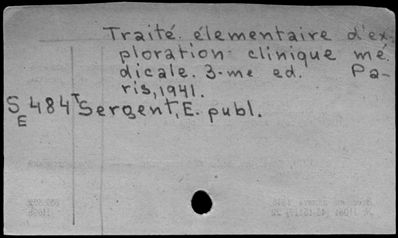 Traité. élementaire d'ex-
ploration clinique mé-
dicale. 3-me ed. Pa-
ris, 1941.
SE484T Sergent, E. publ.